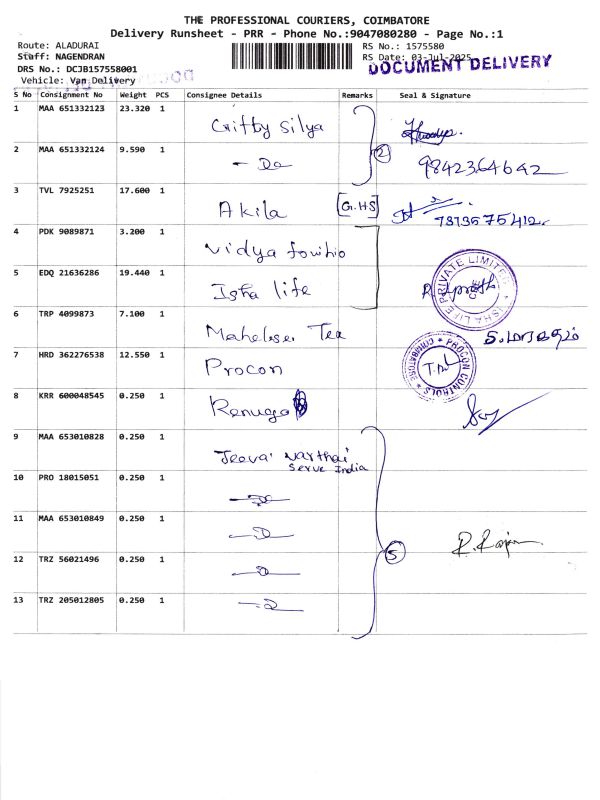 THE PROFESSIONAL COURIERS, COIMBATORE
Delivery Runsheet - PRR - Phone No.:9047080280 - Page No.:1
Route: ALADURAI
RS No.: 1575580
Staff: NAGENDRAN
RS Date: 03-Jul-2025
DRS No.: DCJB157558001
DOCUMENT DELIVERY
Vehicle: Van Delivery
S No Consignment No Weight PCS Consignee Details Remarks Seal & Signature
1 MAA 651332123 23.320 1
2 MAA 651332124 9.590 1 - Do 2 9842364642
3 TVL 7925251 17.600 1 Akila [G.HS]
4 PDK 9089871 3.200 1 Vidya
5 EDQ 21636286 19.440 1 Isha life
ISHA LIFE PRIVATE LIMITED
6 TRP 4099873 7.100 1 Tea
7 HRD 362276538 12.550 1 Procon
PROCON CONTROLS COIMBATORE
8 KRR 600048545 0.250 1 Renuga
9 MAA 653010828 0.250 1 Jeeva Varthai
Serve India
10 PRO 18015051 0.250 1
11 MAA 653010849 0.250 1
5
12 TRZ 56021496 0.250 1
13 TRZ 205012805 0.250 1